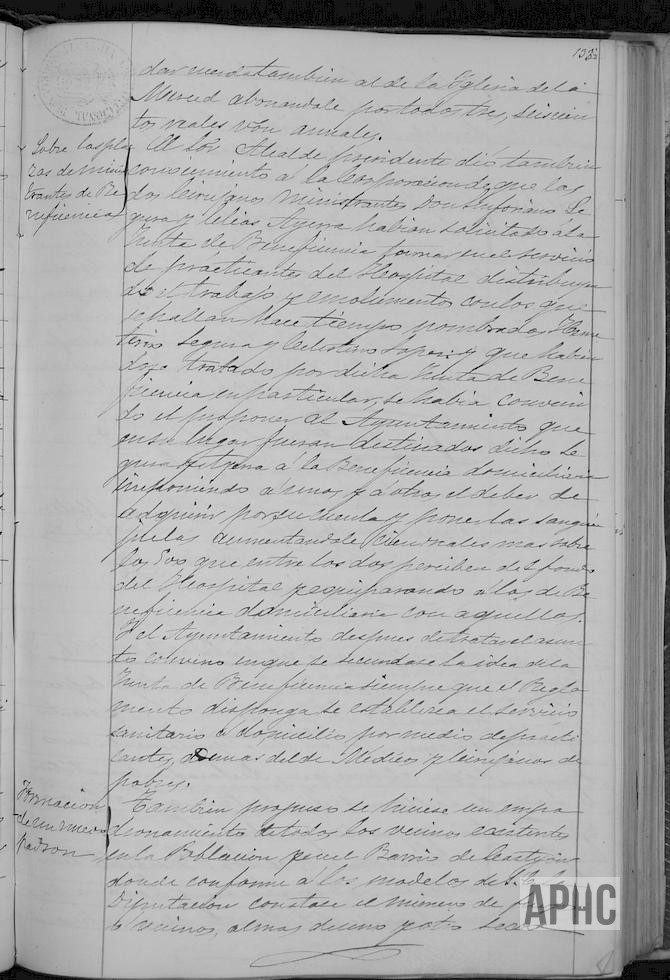 133
dar cuerda tambien al de la Iglesia de la
Merced abonandole por todos tres, seiscien
tos reales von anuales.
Sobre las pla
zas de minis
trantes de Be
neficencia
El Sor Alcalde presidente dió tambien
conocimiento á la Corporacion de que los
dos Cirujanos ministrantes Don Sinforiano Se
gura y Elias Ayerra habian solicitado á la
Junta de Beneficencia turnar en el servicio
de practicantes del Hospital distribuyen
do el trabajo y emolumentos con los que
se hallan hace tiempo nombrados
terio Segura y Celestino y que habien
dose tratado por dicha Junta de Bene
ficencia en particular, se habia conveni
do el proponer al Ayuntamiento que
en su lugar fueran destinados dicho Se
gura y Ayerra á la Beneficencia domiciliaria
imponiendo á unos y á otros el deber de
adquirir por su cuenta y poner las sangui
juelas aumentandole cien reales mas sobre
los 500 que entre los dos perciben del fondo
del Hospital y equiparando á los de Be
neficencia domiciliaria con aquellos.
Y el Ayuntamiento despues de tratar el asun
to convino en que se secundase la idea de la
Junta de Beneficencia siempre que el Regla
mento disponga se establezca el servicio
sanitario á domicilio por medio de practi
cantes, ademas del de Medicos y Cirujanos de
pobres.
Formacion
de un nuevo
padron
Tambien propuso se hiciese un empa
dronamiento de todos los vecinos existentes
en la Poblacion y en el Barrio de
donde conforme á los modelos de la
Diputacion constase el número de
o vecinos, almas de uno y otro sexo
APHC